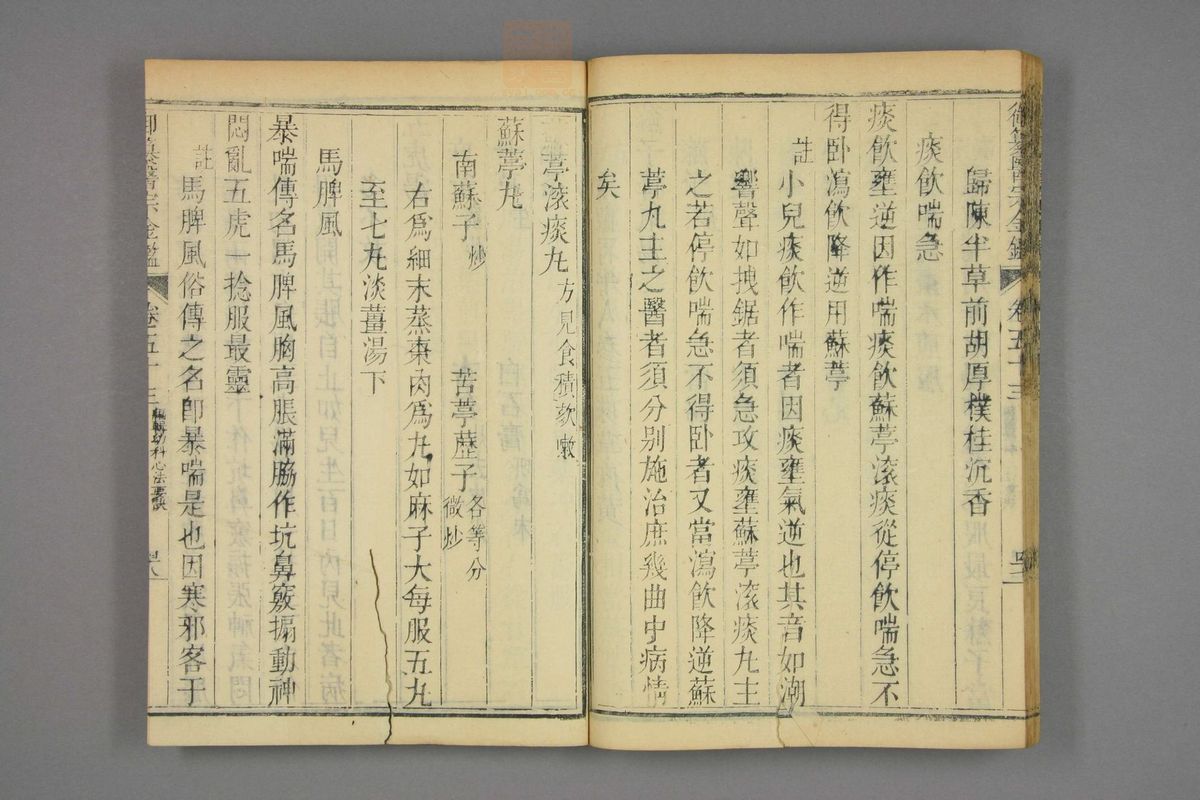 御纂醫宗金鑑 卷五十三
歸陳半草前胡厚樸桂沉香
痰飲喘急
痰飲壅逆因作喘痰飲蘇葶滚痰從停飲喘急不
得卧瀉飲降逆用蘇葶
註小兒痰飲作喘者因痰壅氣逆也其音如潮
響聲如拽鋸者須急攻痰壅蘇葶滚痰丸主
之若停飲喘急不得卧者又當瀉飲降逆蘇
葶丸主之醫者須分别施治庶幾曲中病情
矣
葶滚痰丸方見食積欬嗽
蘇葶丸
南蘇子炒 苦葶藶子各等分微炒
右為細末蒸棗肉為丸如麻子大每服五丸
至七丸淡薑湯下
馬脾風
暴喘傳名馬脾風胸高脹滿脇作坑鼻竅搧動神
悶亂五虎一捻服最靈
註馬脾風俗傳之名即暴喘是也因寒邪客于
御纂醫宗金鑑 卷五十三 編輯幼科心法要訣